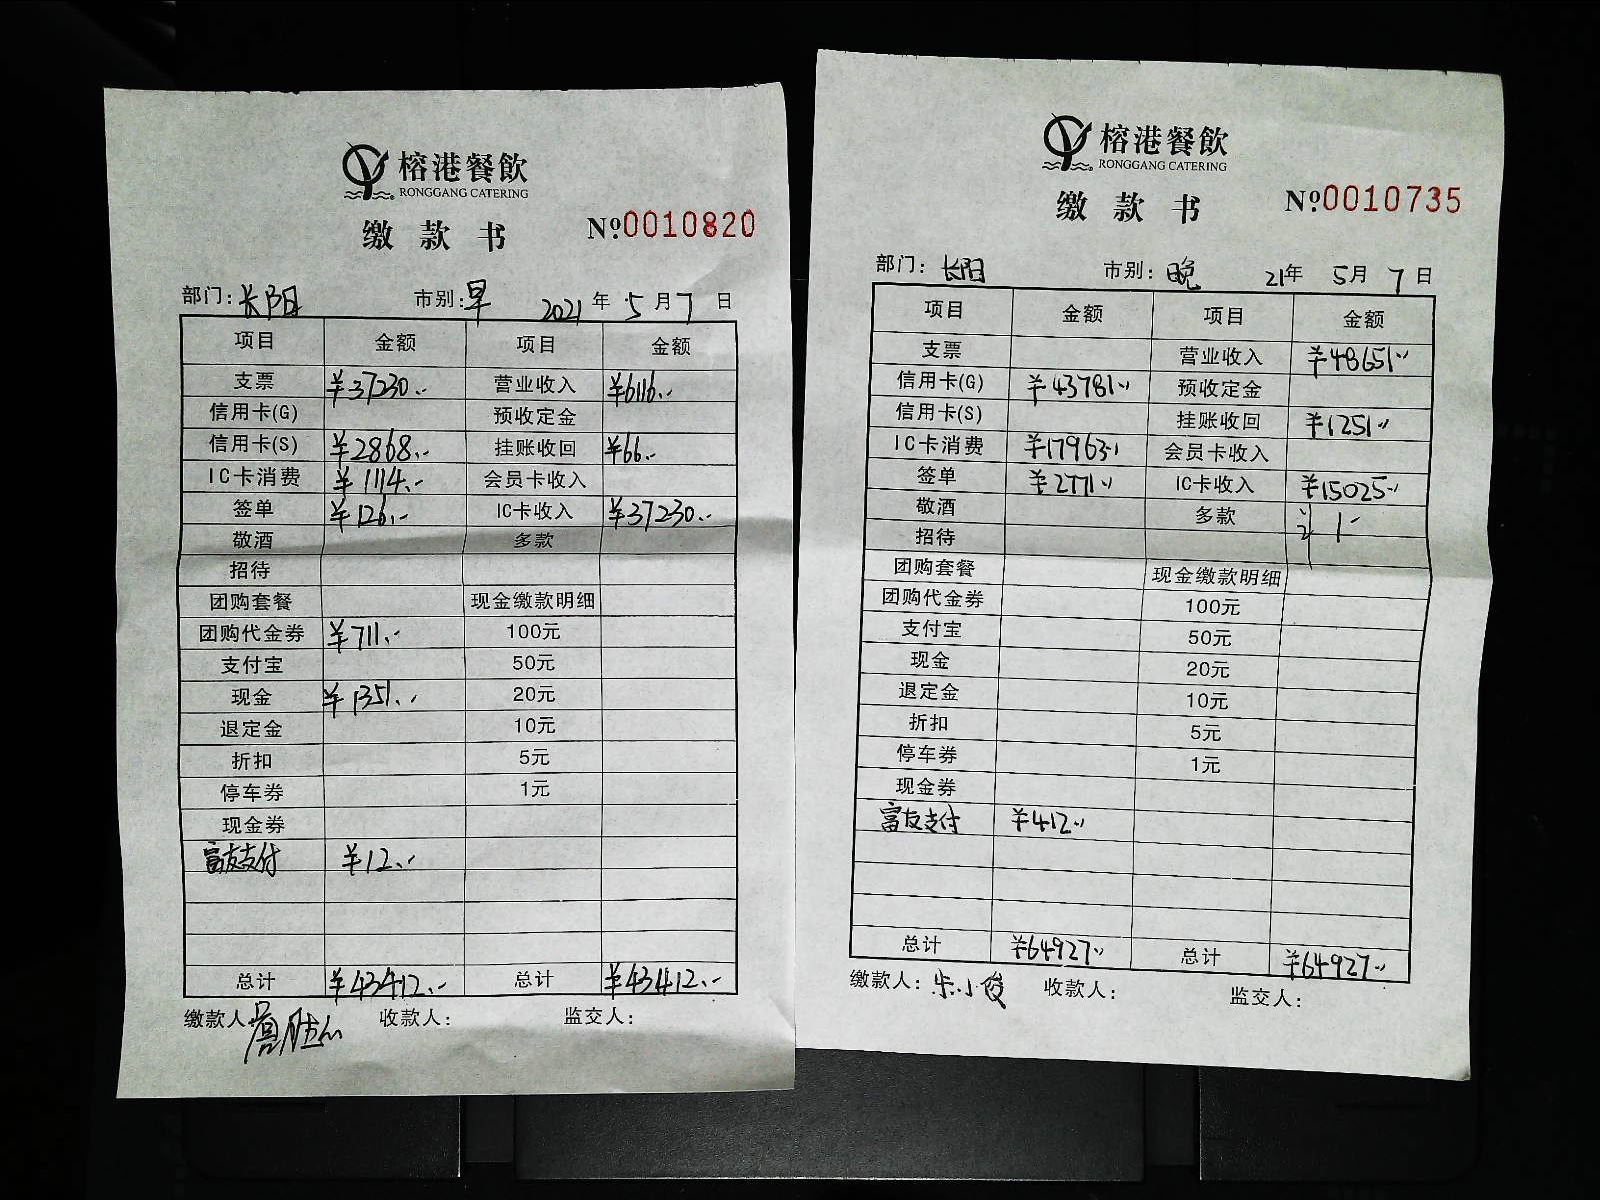 榕港餐飲
RONGGANG CATERING
缴款书 №0010820
部门：长阳 市别：早 2021年5月7日
项目 金额 项目 金额
支票 ¥37230.- 营业收入 ¥6116.-
信用卡(G) 预收定金
信用卡(S) ¥2868.- 挂账收回 ¥66.-
IC卡消费 ¥1114.- 会员卡收入
签单 ¥126.- IC卡收入 ¥37230.-
敬酒 多款
招待
团购套餐 现金缴款明细
团购代金券 ¥711.- 100元
支付宝 50元
现金 ¥1351.- 20元
退定金 10元
折扣 5元
停车券 1元
现金券
富友支付 ¥12.-
总计 ¥43412.- 总计 ¥43412.-
缴款人 收款人： 监交人：
榕港餐飲
RONGGANG CATERING
缴款书 №0010735
部门：长阳 市别：晚 21年5月7日
项目 金额 项目 金额
支票 营业收入 ¥48651.-
信用卡(G) ¥43781.- 预收定金
信用卡(S) 挂账收回 ¥1251.-
IC卡消费 ¥17963.- 会员卡收入
签单 ¥2771.- IC卡收入 ¥15025.-
敬酒 多款 1.-
招待
团购套餐 现金缴款明细
团购代金券 100元
支付宝 50元
现金 20元
退定金 10元
折扣 5元
停车券 1元
现金券
富友支付 ¥412.-
总计 ¥64927.- 总计 ¥64927.-
缴款人：朱小俊 收款人： 监交人：